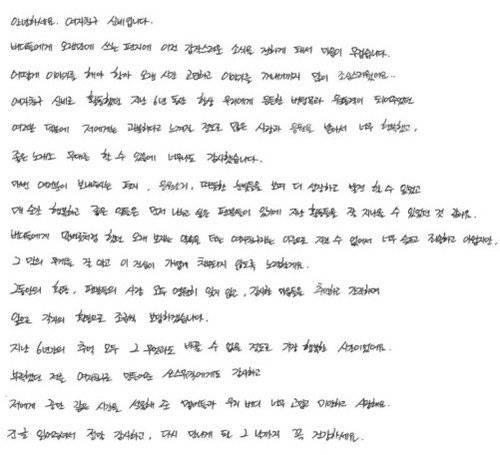 안녕하세요. 여자친구 신비입니다.
버디들에게 오랜만에 쓰는 편지에 이런 갑작스러운 소식을 전하게 돼서 마음이 무겁습니다.
어떻게 이야기를 해야 할까 오랜 시간 고민하고 이야기를 꺼내기까지 많이 조심스러웠어요..
여자친구 신비로 활동했던 지난 6년 동안 항상 우리에게 든든한 버팀목과 원동력이 되어주었던
여러분 덕분에 저에게는 과분하다고 느껴질 정도로 많은 사랑과 응원을 받아서 너무 행복했고,
좋은 노래와 무대를 할 수 있음에 너무나도 감사했습니다.
매번 여러분이 보내주시는 편지, 응원소리, 따뜻한 눈빛들을 보며 더 성장하고 발전 할 수 있었고
매 순간 행복하고 좋은 말들은 먼저 나누고 싶은 팬분들이 있기에 지난 활동들을 잘 지나올 수 있었던 것 같아요.
버디들에게 말버릇처럼 했던 오래 보자는 말을 더는 여자친구라는 이름으로 지킬 수 없어서 너무 슬프고 죄송하고 아쉽지만,
그 말의 무게를 잘 알고 이 진심이 가볍게 치부되지 않도록 노력할게요.
그동안의 활동, 팬분들의 사랑 모두 영원히 잊지 않고, 감사한 마음들을 추억하고 간직하며
앞으로 각자의 활동으로 조금씩 보답하겠습니다.
지난 6년간의 추억 모두 그 무엇과도 바꿀 수 없을 정도로 가장 행복한 시간이었어요.
부족했던 저를 여자친구로 만들어준 쏘스뮤직에게도 감사하고
저에게 공간 같은 시간을 선물해 준 멤버들과 우리 버디 너무 고맙고 미안하고 사랑해요.
긴 글 읽어주셔서 정말 감사하고, 다시 만나게 될 그 날까지 꼭 건강하세요.